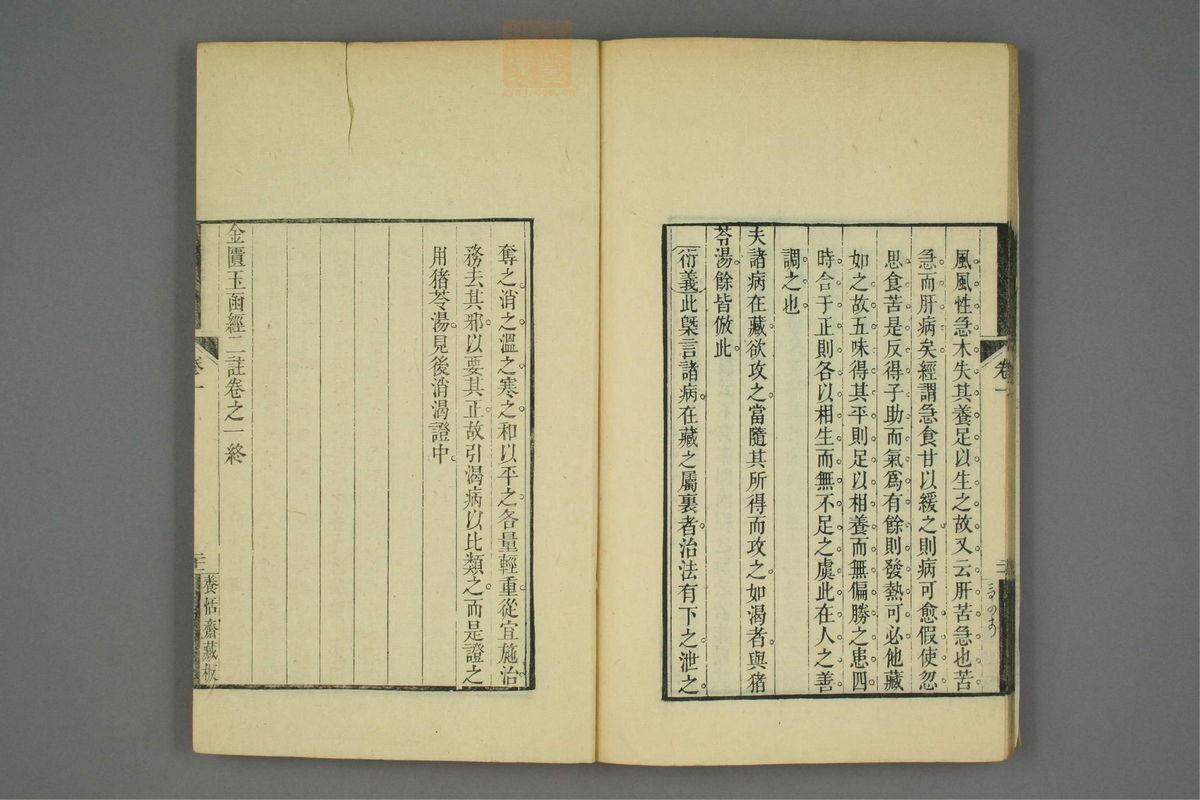 風風性急木失其養足以生之故又云肝苦急也苦
急而肝病矣經謂急食甘以緩之則病可愈假使忽
思食苦是反得子助而氣爲有餘則發熱可必他藏
如之故五味得其平則足以相養而無偏勝之患四
時合于正則各以相生而無不足之虞此在人之善
調之也
夫諸病在藏欲攻之當隨其所得而攻之如渴者與猪
苓湯餘皆倣此
衍義此槩言諸病在藏之屬裏者治法有下之泄之
卷一
奪之消之溫之寒之和以平之各量輕重從宜施治
務去其邪以要其正故引渴病以比類之而是證之
用猪苓湯見後消渴證中
金匱玉函經二註卷之一終
卷一
二
養恬齋藏板